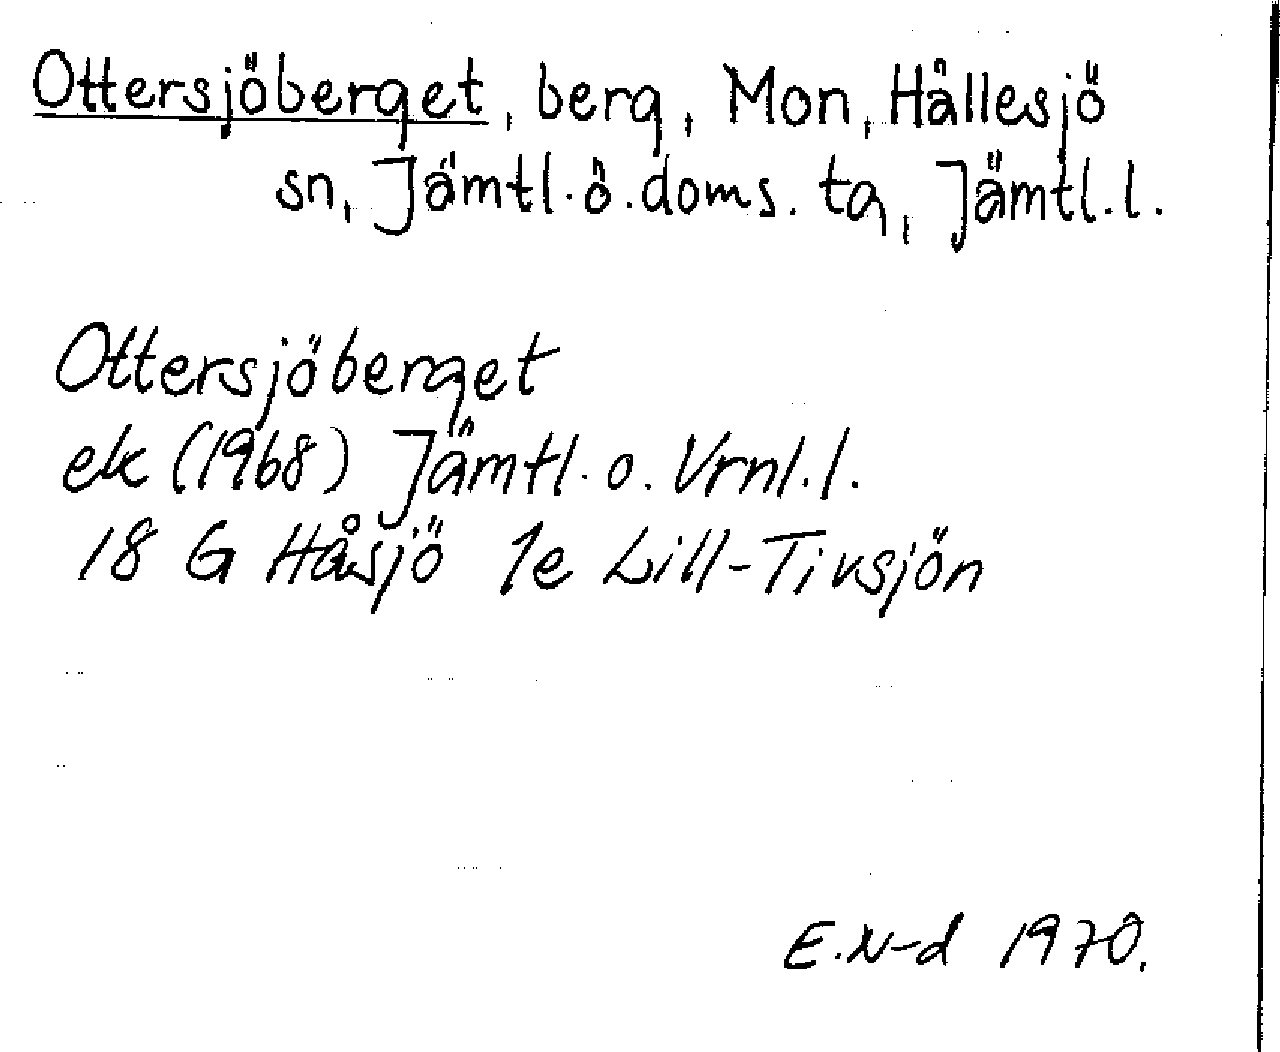 Ottersjöberget, berg, Mon, Hållesjö
sn, Jämtl. ö. doms. ta, Jämtl. l.
Ottersjöberget
ek (1968) Jämtl. o. Vrnl. l.
18 G Håsjö 1e Lill-Tivsjön
E.N-d 1970.